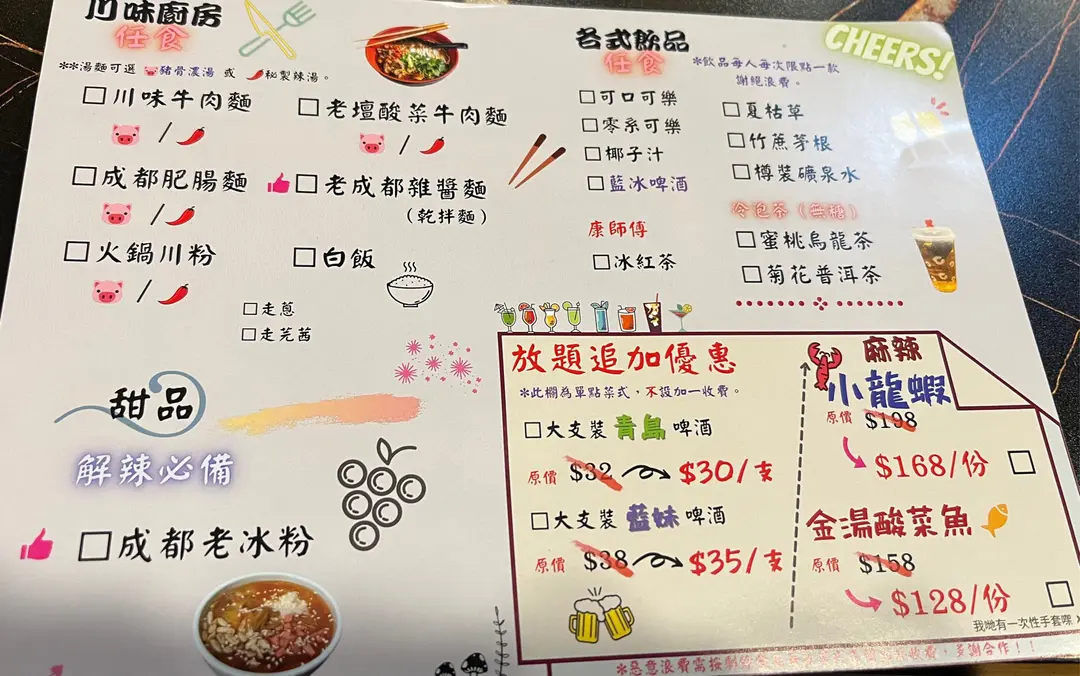 川味廚房
任食
**湯麵可選 豬骨濃湯 或 秘製辣湯。
□川味牛肉麵
/
□老壇酸菜牛肉麵
/
□成都肥腸麵
/
□老成都雜醬麵
(乾拌麵)
□火鍋川粉
/
□白飯
□走蔥
□走芫茜
甜品
解辣必備
□成都老冰粉
各式飲品
任食
*飲品每人每次限點一款
謝絕浪費。
CHEERS!
□可口可樂
□零系可樂
□椰子汁
□藍冰啤酒
康師傅
□冰紅茶
□夏枯草
□竹蔗茅根
□樽裝礦泉水
冷泡茶(無糖)
□蜜桃烏龍茶
□菊花普洱茶
放題追加優惠
*此欄為單點菜式,不設加一收費。
□大支裝青島啤酒
原價 $32 $30/支
□大支裝藍妹啤酒
原價 $38 $35/支
麻辣
小龍蝦
原價 $198
$168/份 □
金湯酸菜魚
原價 $158
$128/份 □
我哋有一次性手套㗎
*惡意浪費需按剩
收費,多謝合作!!